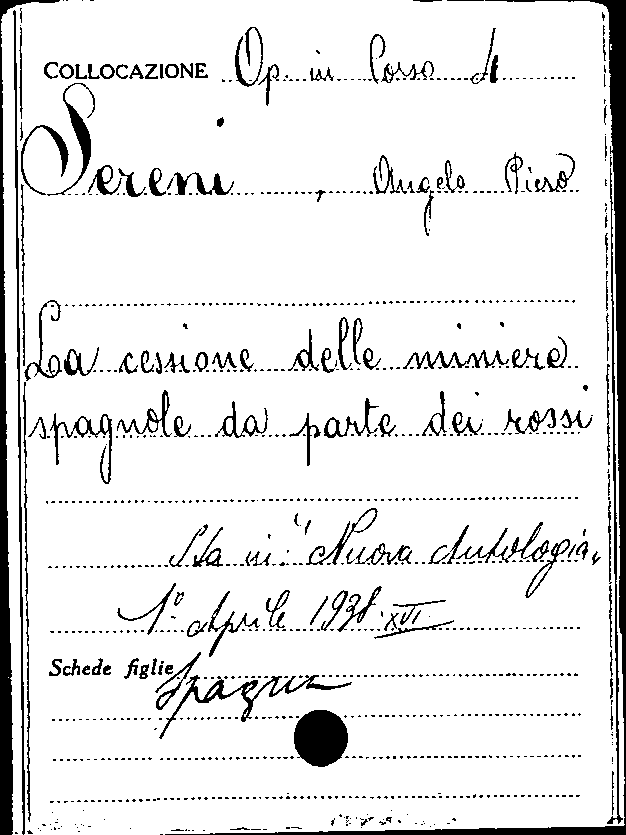 COLLOCAZIONE Op. in Corso di
Sereni, Angelo Piero
La cessione delle miniere
spagnole da parte dei rossi
Sta in: "Nuova Antologia"
1° Aprile 1938. XVI
Schede figlie
Spagna